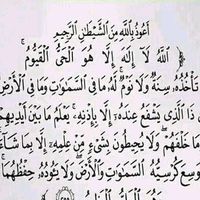 أَعُوذُ بِاللَّهِ مِنَ الشَّيْطَٰنِ الرَّجِيمِ
ٱللَّهُ لَآ إِلَٰهَ إِلَّا هُوَ ٱلْحَىُّ ٱلْقَيُّومُ ۚ
تَأْخُذُهُۥ سِنَةٌ وَلَا نَوْمٌ ۚ لَّهُۥ مَا فِى ٱلسَّمَٰوَٰتِ وَمَا فِى ٱلْأَرْضِ
ذَا ٱلَّذِى يَشْفَعُ عِندَهُۥٓ إِلَّا بِإِذْنِهِۦ ۚ يَعْلَمُ مَا بَيْنَ أَيْدِيهِمْ
مَا خَلْفَهُمْ ۖ وَلَا يُحِيطُونَ بِشَىْءٍ مِّنْ عِلْمِهِۦٓ إِلَّا بِمَا شَآءَ
وَسِعَ كُرْسِيُّهُ ٱلسَّمَٰوَٰتِ وَٱلْأَرْضَ ۖ وَلَا يَـُٔودُهُۥ حِفْظُهُمَا ۚ